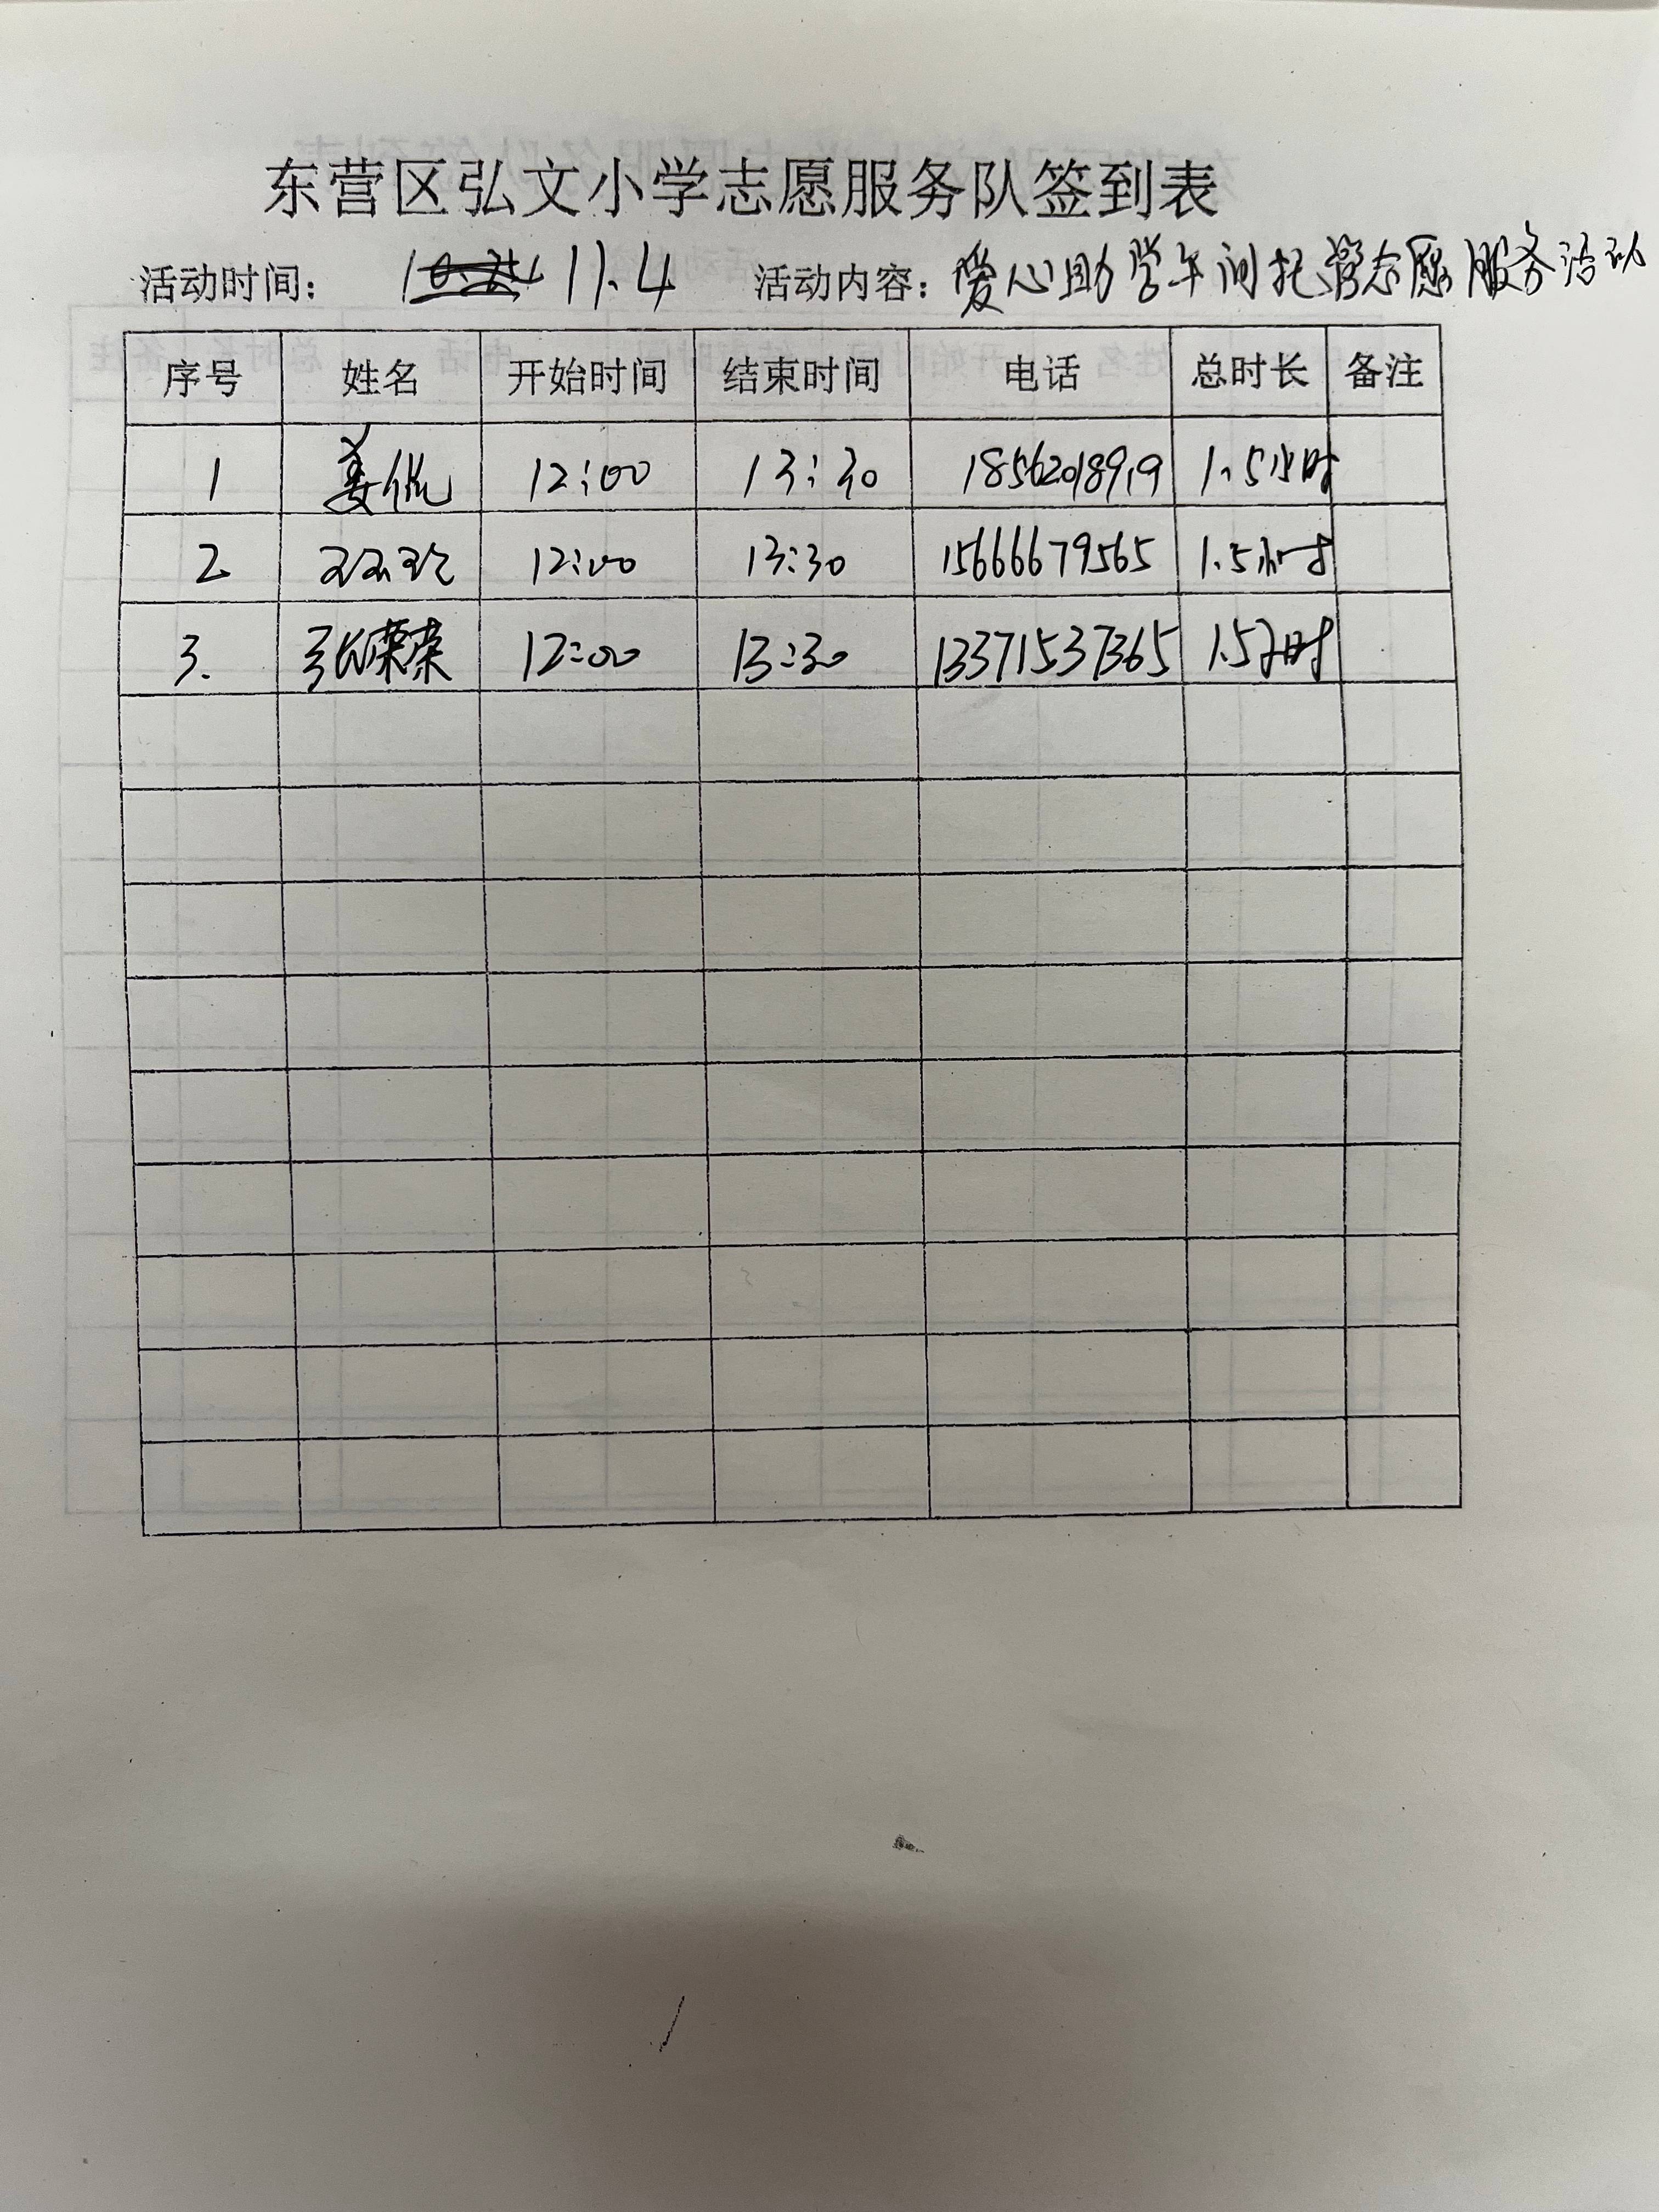 东营区弘文小学志愿服务队签到表
活动时间： 11.4 活动内容：爱心助学午间托管志愿服务活动
序号 姓名 开始时间 结束时间 电话 总时长 备注
1 姜 12:00 13:30 18562018919 1.5小时
2 12:00 13:30 15666679565 1.5小时
3. 张荣荣 12:00 13:30 13371537365 1.5小时